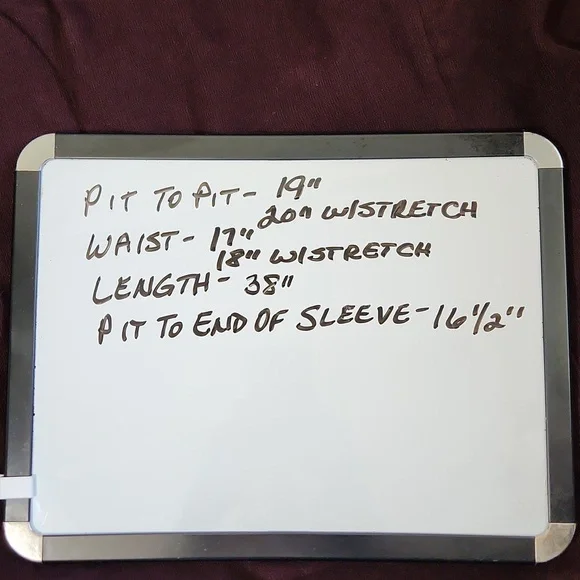 PIT TO PIT- 19"
20" W/STRETCH
WAIST- 17"
18" W/STRETCH
LENGTH- 38"
PIT TO END OF SLEEVE-16 1/2"